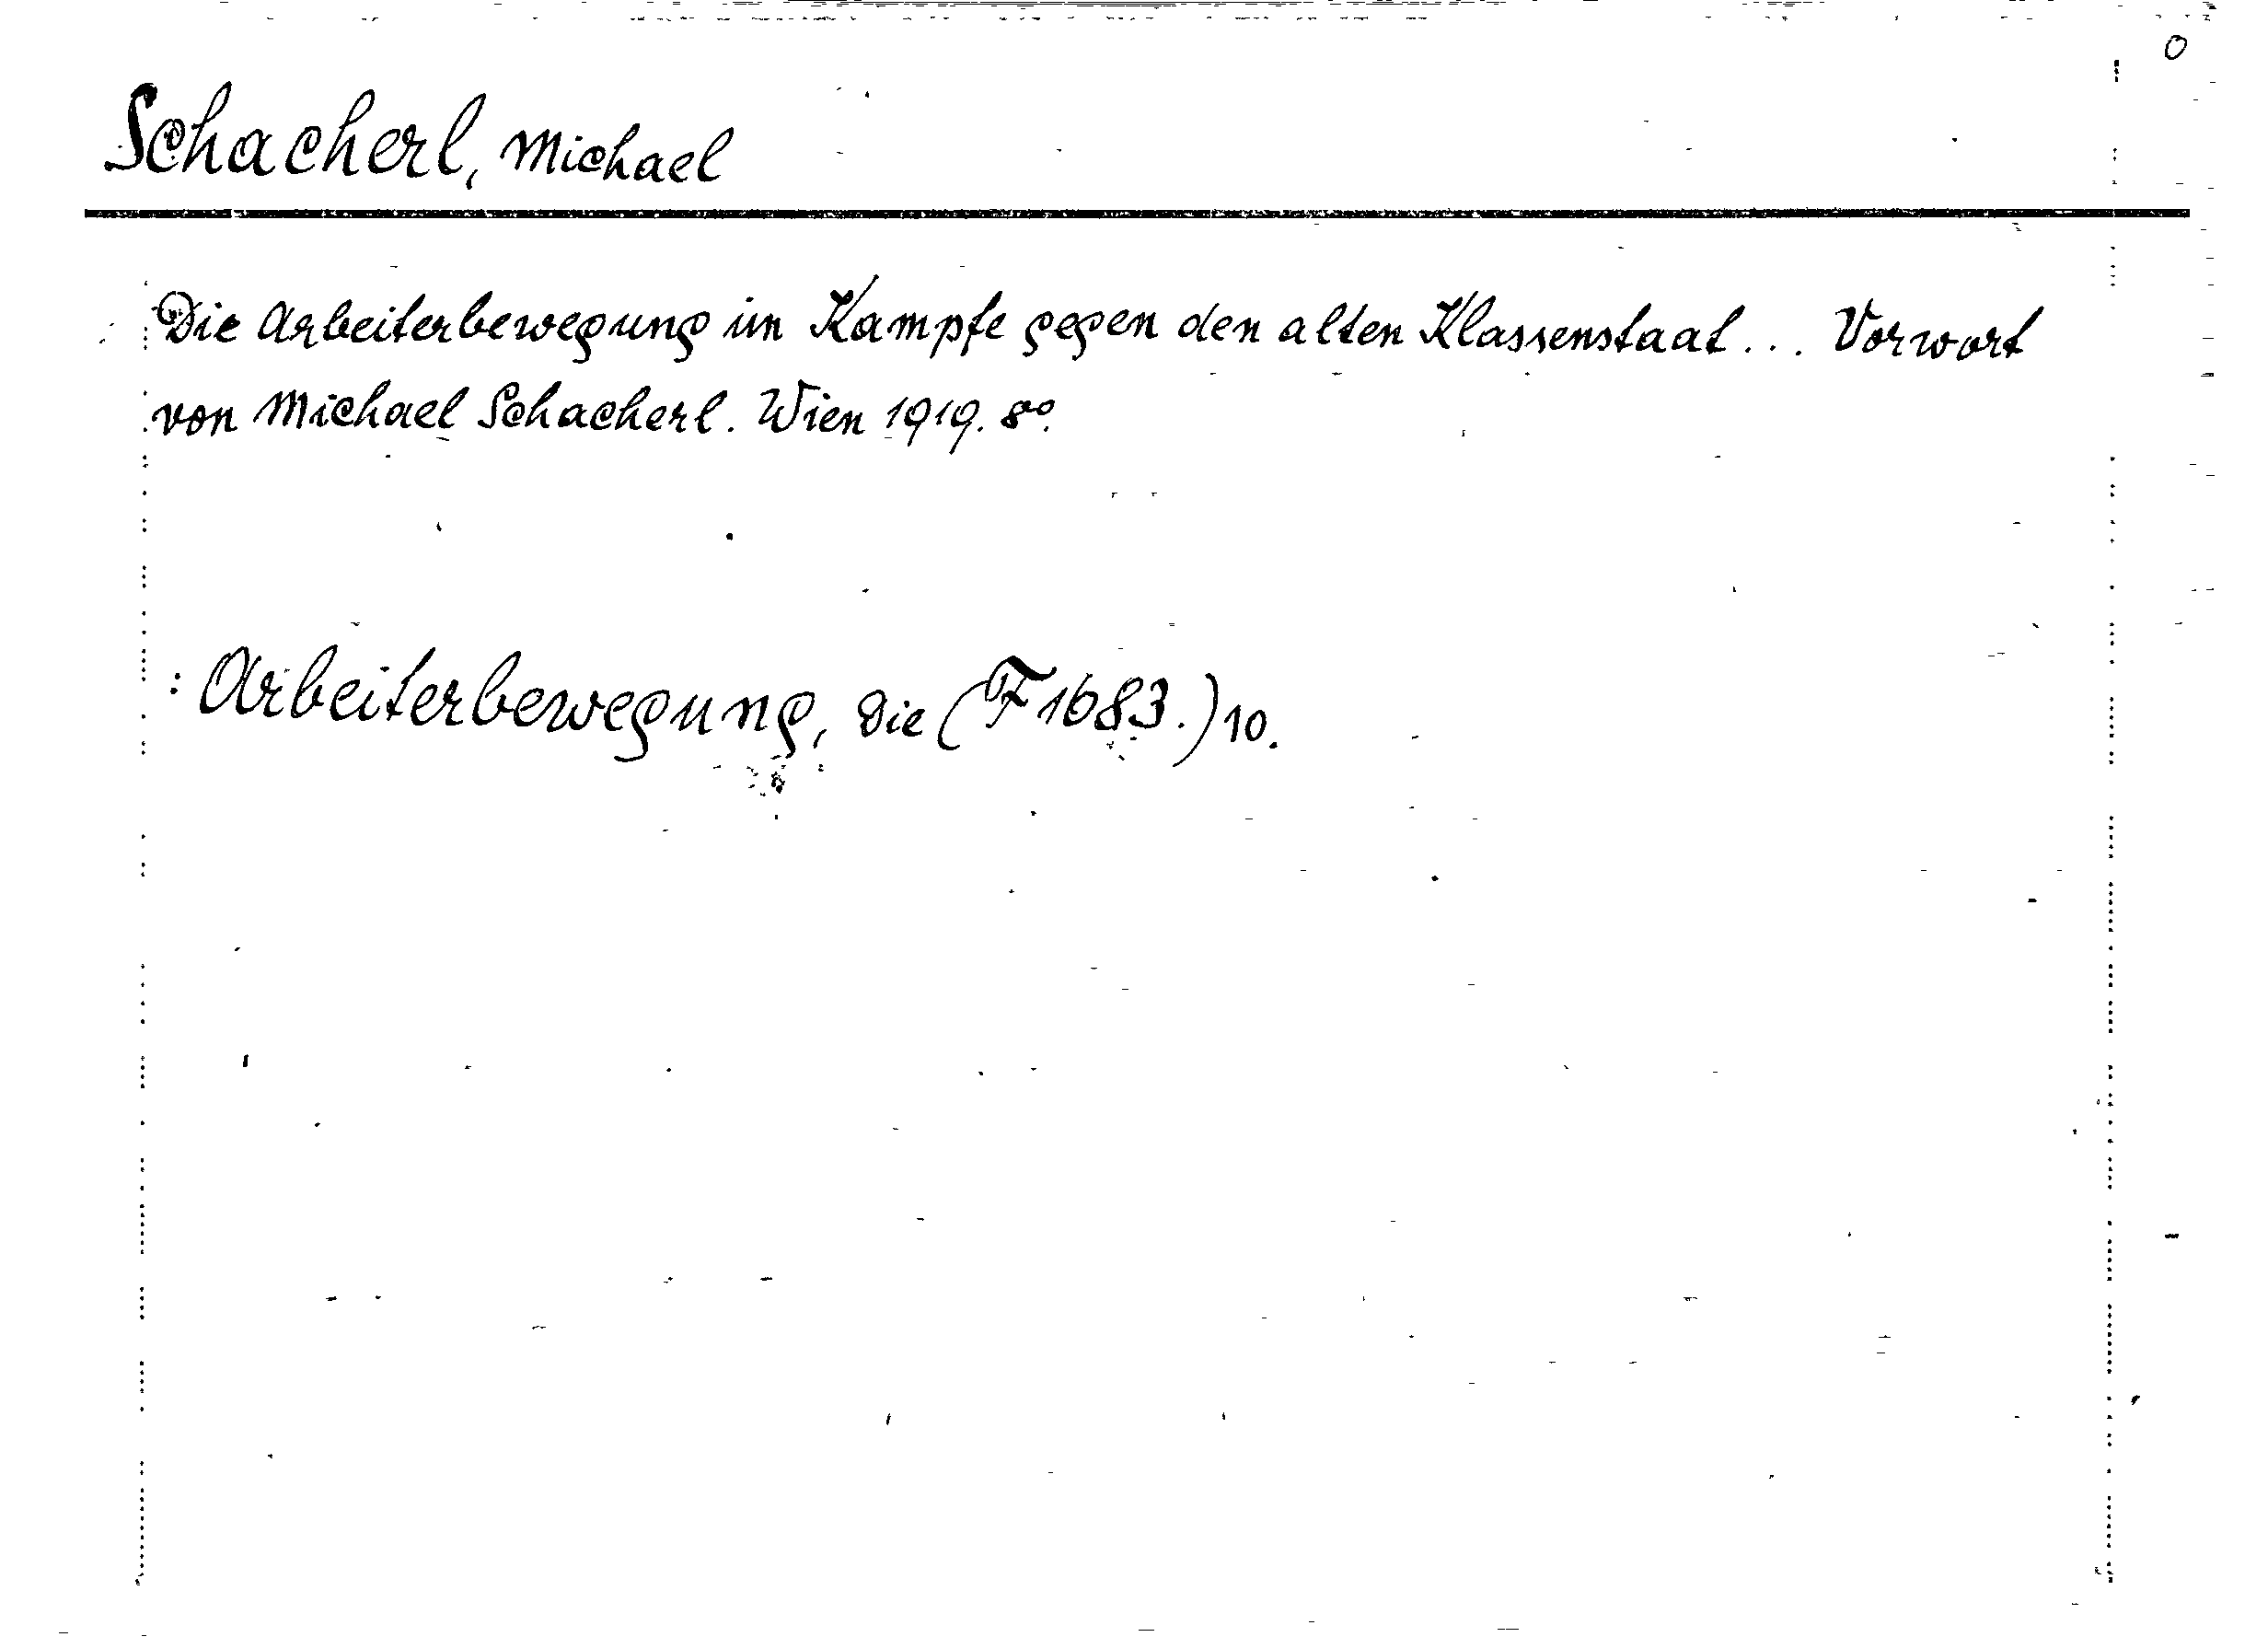 O
Schacherl, Michael
Die Arbeiterbewegung im Kampfe gegen den alten Klassenstaat... Vorwort
von Michael Schacherl. Wien 1919. 8°.
: Arbeiterbewegung, Die (F1683.) 10.